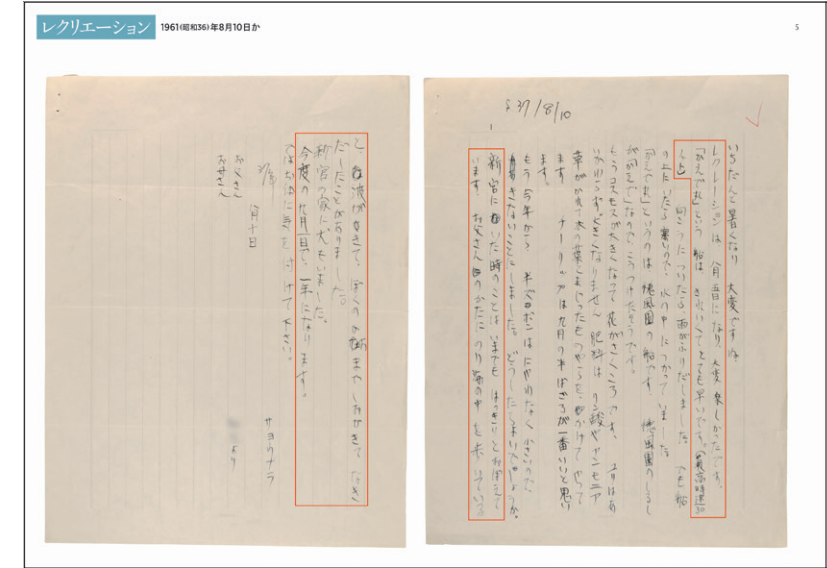 レクリエーション 1961(昭和36)年8月10日か
5
S 37/8/10
1
いちだんと暑くなり 大変ですね。
レクレーションは 八月五日になり、大変 楽しかったです。
「かえで丸」という 船は、きれいくてとても早いです。(最高時速30
向こうについたら雨がふりだしました。でも船
の上にいたら寒いので、水の中につかっていました。
「かえで丸」というのは 徳風園の船です。 徳風園のしるし
が「かえで」なので、こうつけたそうです。
もうコスモスが大きくなって 花がさくころです。ユリはあ
いかわらず、大きくなりません 肥料は リン酸やアンモニア
草がかれて木の葉とまじったものやらを、かけて やって
ます チューリップは九月の半ばごろが一番いいと思い
ます。
もう今年から
ことにしました。どうしたらよいでしょうか。
新宮にいた時のことは いまでも はっきりとおぼえて
います。お父さんのかたにのり海の中を歩いている
と、波がきて、ぼくの頭までしおがきて なき
だしたことがありました。
新宮の家に犬もいました。
今度の九月一日で、一年になります。
ではお体に気を付けて下さい。
サヨウナラ
八月十日
より
お父さん
お母さん